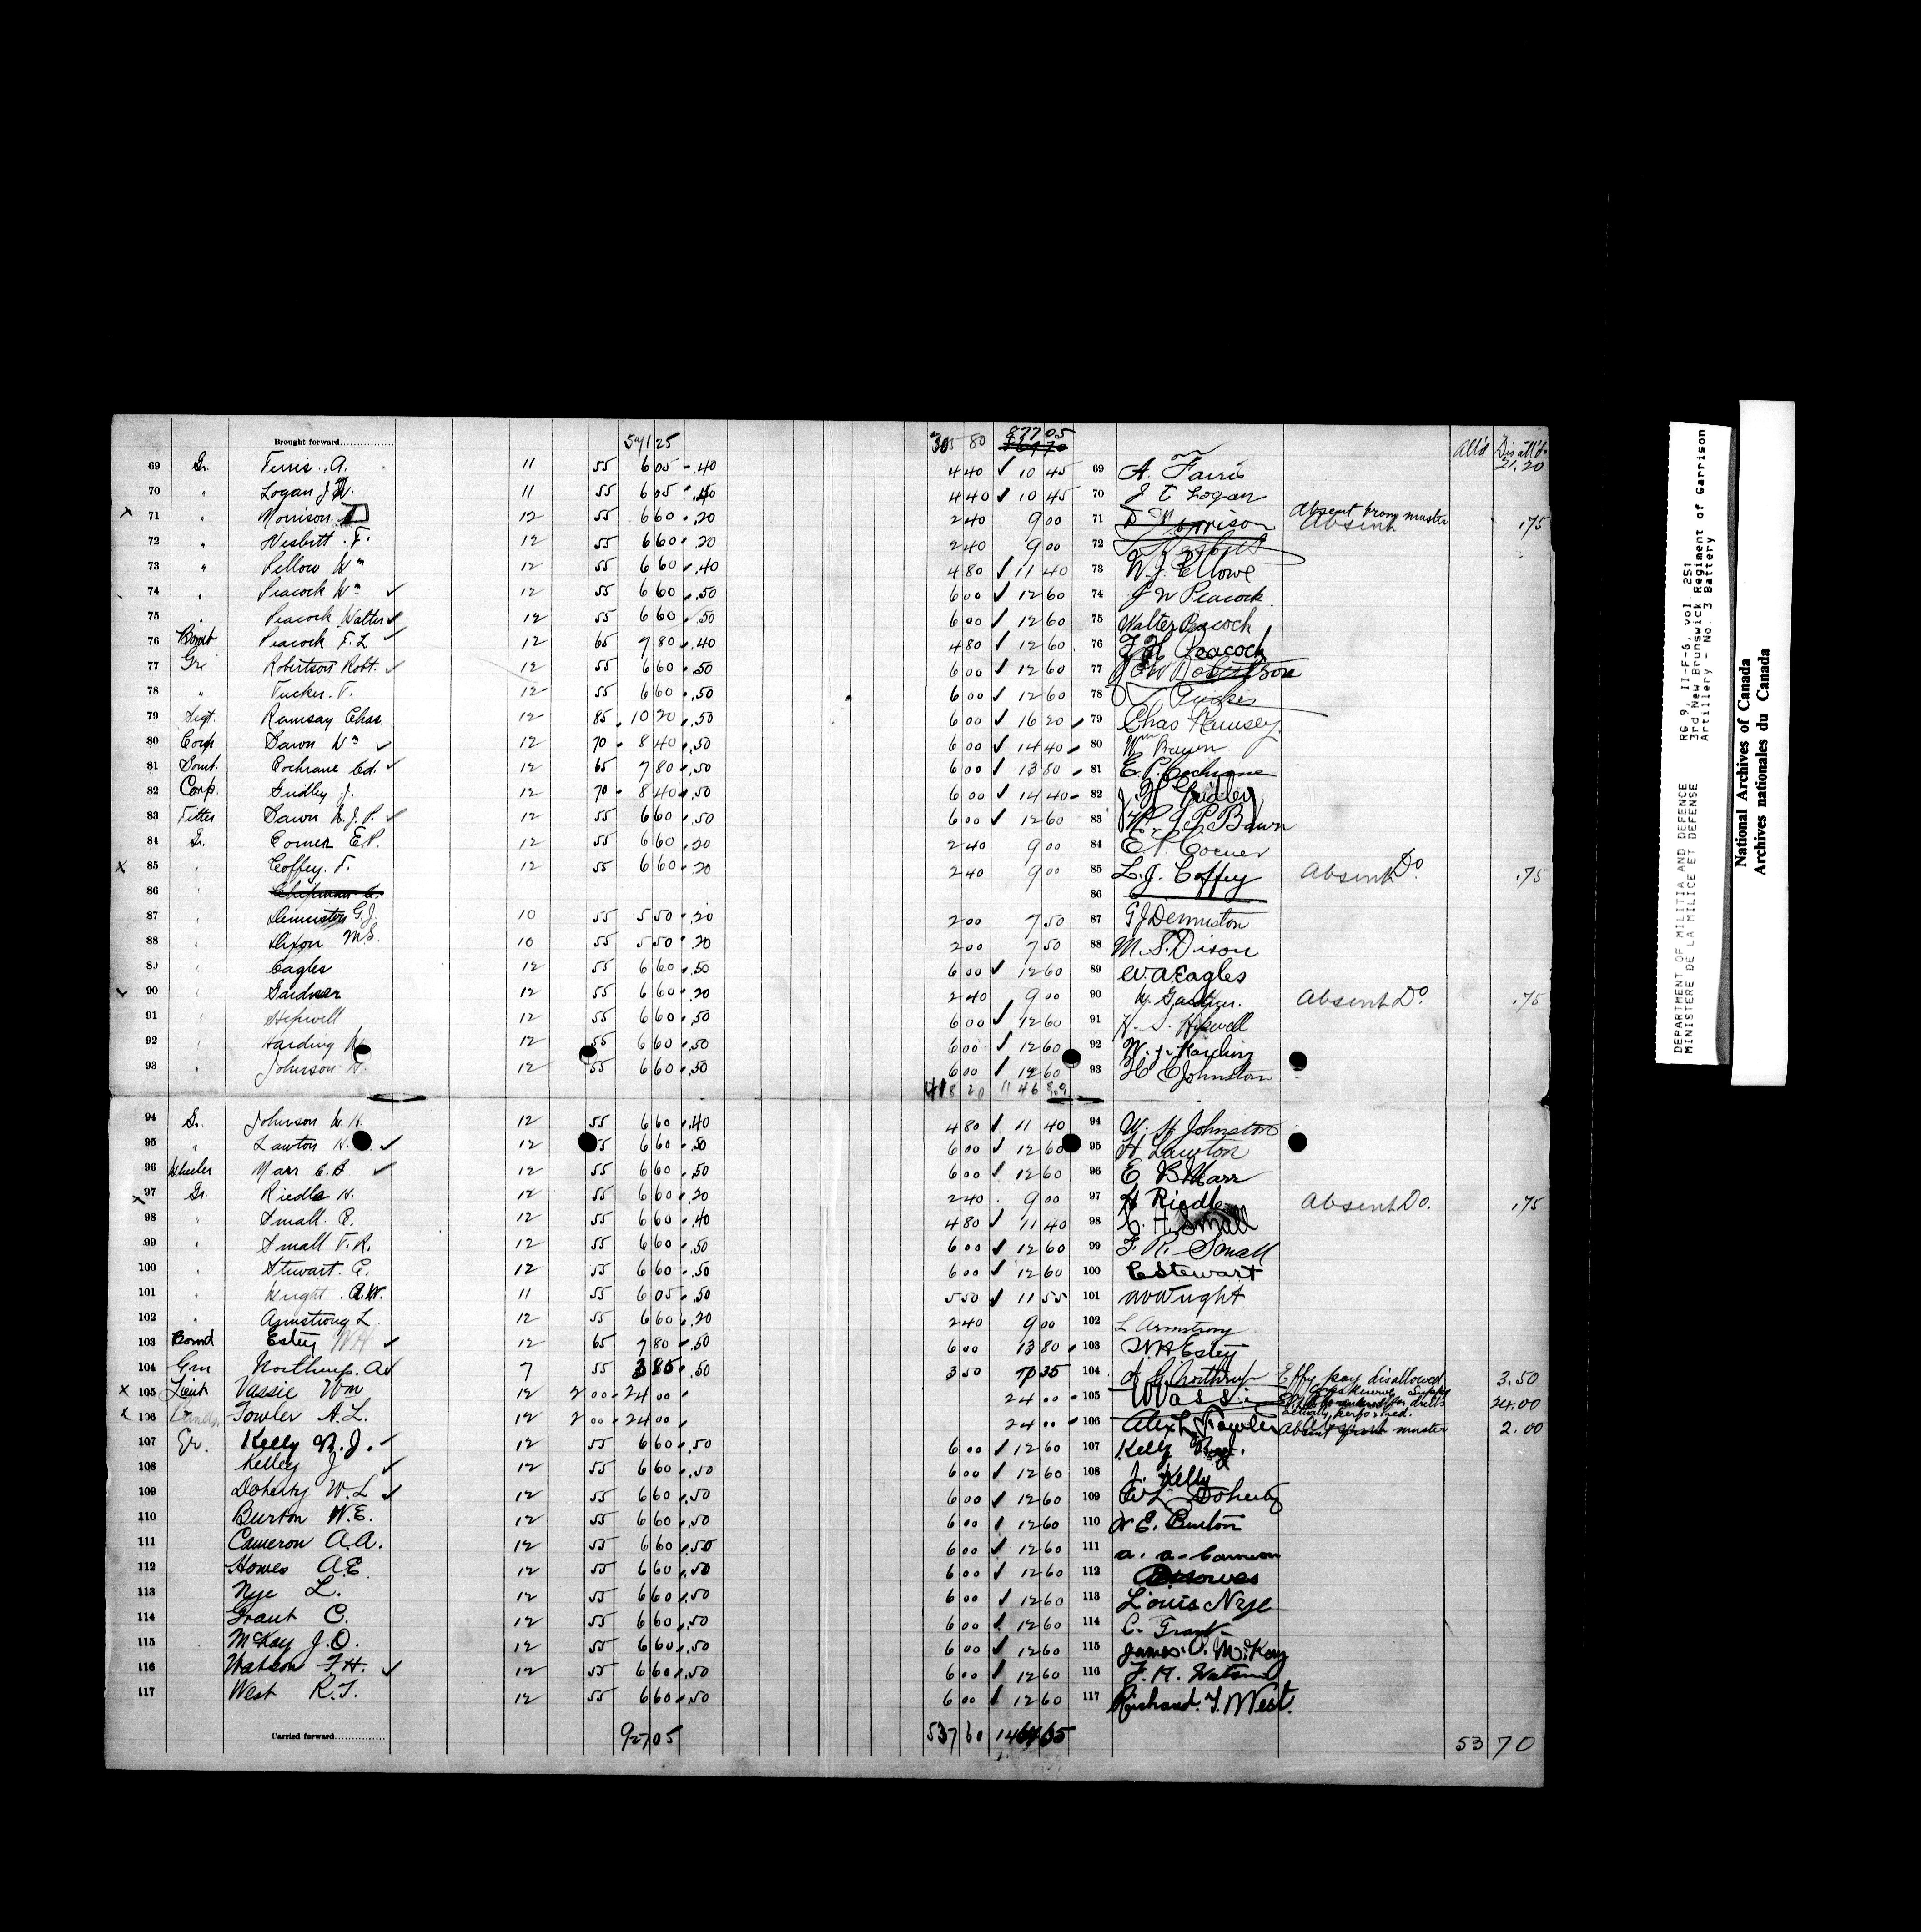 Brought forward 571 25 305 80 877 05 All'd Disall'd
21.20
69 Gr. Ferris A. 11 55 6 05 .40 4 40 ✓ 10 45 69 A. Farris
70 " Logan J 11 55 6 05 .40 4 40 ✓ 10 45 70 J Logan
x 71 " Morrison 12 55 6 60 .20 2 40 9 00 71 D Morrison Absent from muster Absent .75
72 " Nesbitt F. 12 55 6 60 .20 2 40 9 00 72 Nesbitt
73 " Pellow Wm 12 55 6 60 .40 4 80 ✓ 11 40 73 W. J. Pellowe
74 " Peacock Wm ✓ 12 55 6 60 .50 6 00 ✓ 12 60 74 J W Peacock
75 " Peacock Walter ✓ 12 55 6 60 .50 6 00 ✓ 12 60 75 Walter Peacock
76 Bomb Peacock F. L ✓ 12 65 7 80 .40 4 80 ✓ 12 60 76 Peacock
77 Gr Robertson Robt. ✓ 12 55 6 60 .50 6 00 ✓ 12 60 77 Robertson
78 " Tucker. T. 12 55 6 60 .50 6 00 ✓ 12 60 78 Tucker
79 Sergt. Ramsay Chas. 12 85 10 20 .50 6 00 ✓ 16 20 79 Chas Ramsey
80 Corp Bawn Wm ✓ 12 70 8 40 .50 6 00 ✓ 14 40 80 Wm Bawn
81 Bomb. Cochrane Ed. ✓ 12 65 7 80 .50 6 00 ✓ 13 80 81 E. P. Cochrane
82 Corp. Gridley J. 12 70 8 40 .50 6 00 ✓ 14 40 82 J H Gridley
83 Fitter Bawn W. J. P. ✓ 12 55 6 60 .50 6 00 ✓ 12 60 83 W. J. P. Bawn
84 Gr. Corner E.P. 12 55 6 60 .20 2 40 9 00 84 E. P. Corner
x 85 " Coffey. T. 12 55 6 60 .20 2 40 9 00 85 L. J. Coffey Absent Do. .75
86 " Chipman 86
87 " G. J. 10 55 5 50 .20 2 00 7 50 87 G J Denniston
88 " Dixon M.S. 10 55 5 50 .20 2 00 7 50 88 M. S. Dixon
89 " Eagles 12 55 6 60 .50 6 00 ✓ 12 60 89 W. A. Eagles
90 " Gardner 12 55 6 60 .20 2 40 9 00 90 W. Gardner. Absent Do .75
91 " Hipwell 12 55 6 60 .50 6 00 ✓ 12 60 91 H. S. Hipwell
92 " Harding W. 12 55 6 60 .50 6 00 ✓ 12 60 92 W. J. Harding
93 " Johnson H. 12 55 6 60 .50 6 00 ✓ 12 60 93 H E Johnston
418 20 11 46
94 Gr. Johnson W. H. 12 55 6 60 .40 4 80 ✓ 11 40 94 W. H Johnston
95 " Lawton H. ✓ 12 55 6 60 .50 6 00 ✓ 12 60 95 H Lawton
96 Wheeler Marr E. B. ✓ 12 55 6 60 .50 6 00 ✓ 12 60 96 E B Marr
x 97 Gr. Riedle H. 12 55 6 60 .20 2 40 9 00 97 H Riedle Absent Do. .75
98 " Small. C. 12 55 6 60 .40 4 80 ✓ 11 40 98 C. H. Small
99 " Small F. R. 12 55 6 60 .50 6 00 ✓ 12 60 99 F. R. Small
100 " Stewart. C. 12 55 6 60 .50 6 00 ✓ 12 60 100 C Stewart
101 " Wright A.W. 11 55 6 05 .50 5 50 ✓ 11 55 101 A W Wright
102 " Armstrong L 12 55 6 60 .20 2 40 9 00 102 L Armstrong
103 Bomd Estey WH ✓ 12 65 7 80 .50 6 00 13 80 103 W H Estey
104 Gnr Northrup. A ✓ 7 55 3 85 .50 3 50 7 35 104 Northrup Effy pay disallowed 3.50
x 105 Lieut Vassie Wm 12 2 00 24 00 24 00 105 W Vassie 24.00
x 106 Fowler A. L. 12 2 00 24 00 24 00 106 Alex L Fowler Absent from muster 2.00
107 Gr. Kelly R. J. ✓ 12 55 6 60 .50 6 00 ✓ 12 60 107 Kelly R. J.
108 Kelley J ✓ 12 55 6 60 .50 6 00 ✓ 12 60 108 J. Kelly
109 Doherty W. L ✓ 12 55 6 60 .50 6 00 ✓ 12 60 109 W L Doherty
110 Burton W. E. 12 55 6 60 .50 6 00 ✓ 12 60 110 W E. Burton
111 Cameron A.A. 12 55 6 60 .50 6 00 ✓ 12 60 111 A. A. Cameron
112 Howes A.E. 12 55 6 60 .50 6 00 ✓ 12 60 112 Howes
113 Nye L. 12 55 6 60 .50 6 00 ✓ 12 60 113 Louis Nye
114 Grant C. 12 55 6 60 .50 6 00 ✓ 12 60 114 C. Grant
115 McKay J. O. 12 55 6 60 .50 6 00 ✓ 12 60 115 James O. McKay
116 Watson F. H. ✓ 12 55 6 60 .50 6 00 ✓ 12 60 116 F. H. Watson
117 West R. T. 12 55 6 60 .50 6 00 ✓ 12 60 117 Richard T. West.
Carried forward 927 05 537 60 1464 65 53 70
DEPARTMENT OF MILITIA AND DEFENCE
MINISTERE DE LA MILICE ET DEFENSE
RG 9, II-F-6, vol 251
3rd New Brunswick Regiment of Garrison
Artillery - No. 3 Battery
National Archives of Canada
Archives nationales du Canada